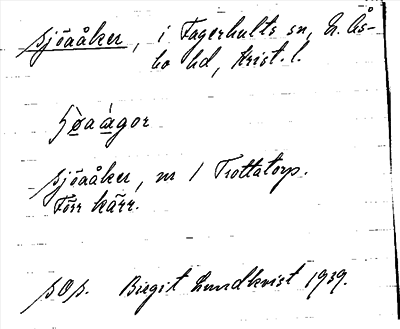 sjöaåker, i Fagerhults sn, N. Ås-
bo hd, Krist. l.
sjöaåker, nr 1 Trottatorp.
Förr kärr.
sOs. Birgit Lundkvist 1939.